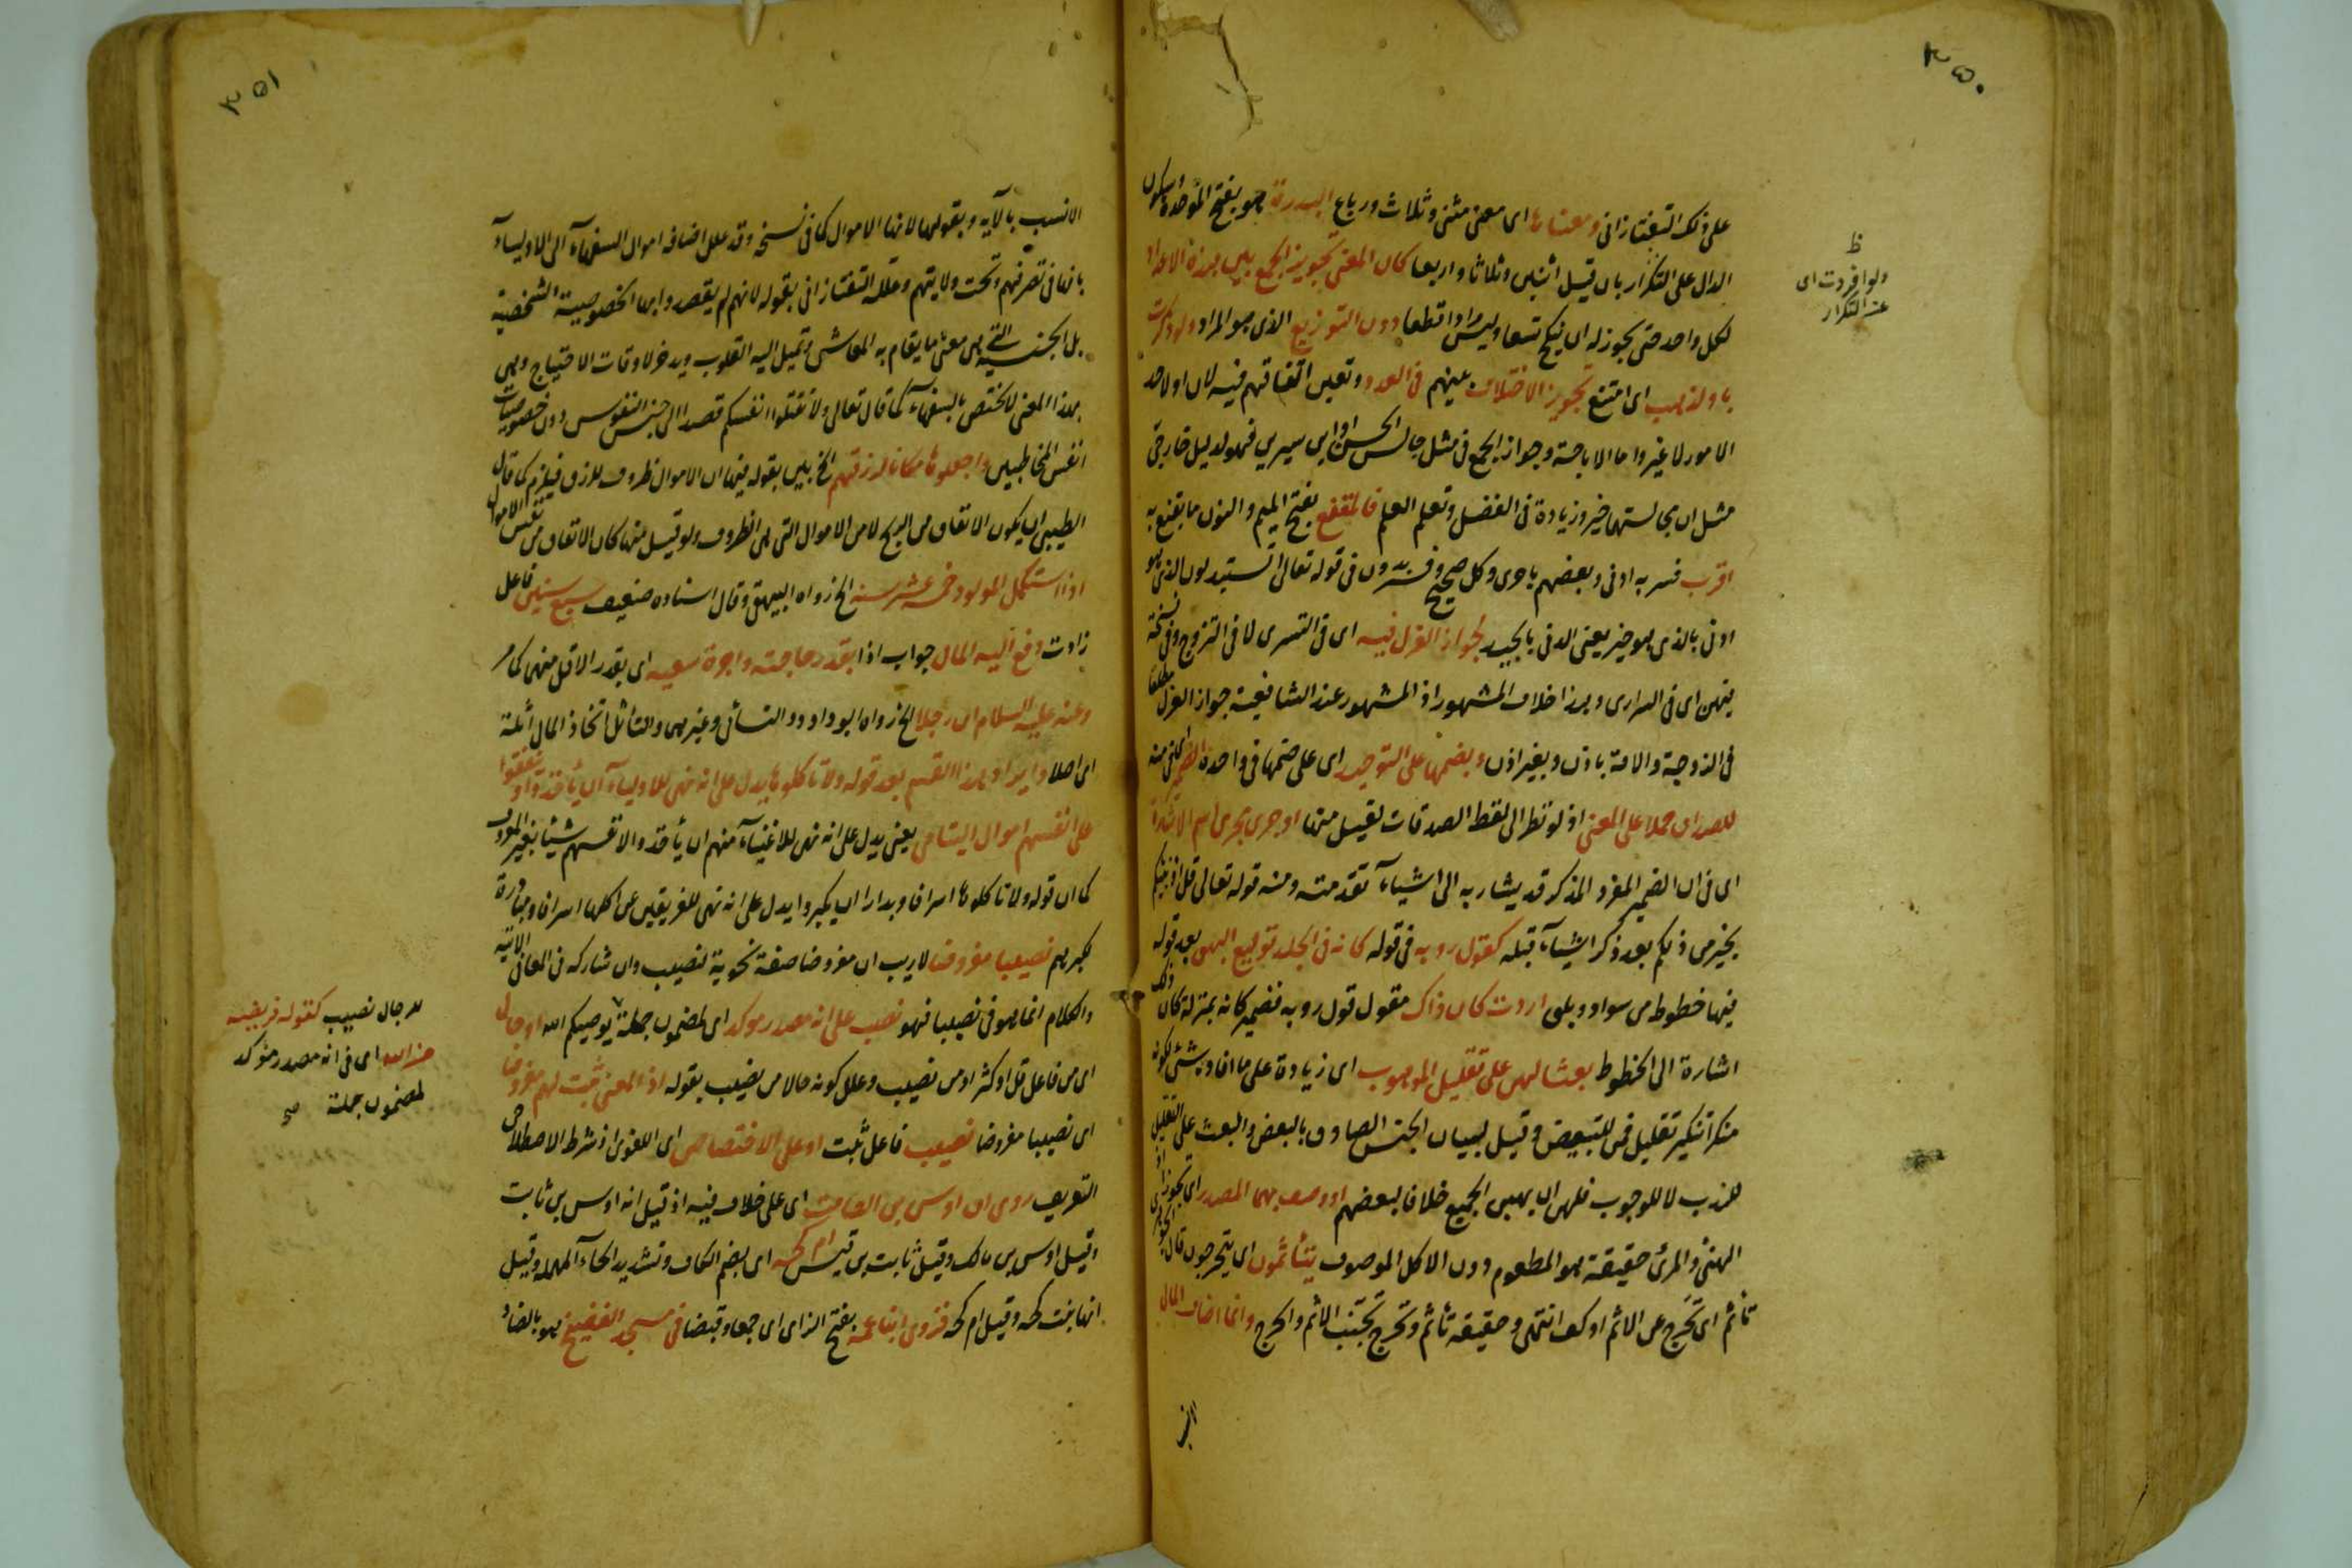 ٣٥٠
على ذلك التفتازانى ومعناها اى معنى مثنى وثلاث ورباع البدرة هو بفتح الموحدة وسكون
الدال على التكرار بان قيل اثنين وثلاثا واربعا كان المعنى تجويز الجمع بين هذه الاعداد
لكل واحد حتى يجوز له ان ينكح تسعا وليس مرادا قطعا دون التوزيع الذى هو المراد ولو ذكرت
باو لذهب اى امتنع تجويز الاختلاف بينهم فى العدد وتعين اتفاقهم فيه لان او لاحد
الامور لا غير واما الاباحة وجواز الجمع فى مثل جالس الحسن او ابن سيرين فهو لدليل خارجى
مثل ان مجالستهما خير وزيادة فى الفضل وتعلم العلم فالمقنع بفتح الميم والنون ما يقنع به
اقرب فسر به ادنى وبعضهم باحرى وكل صحيح فى قوله تعالى اتستبدلون الذى هو
ادنى بالذى هو خير يعنى الدنى بالجيد لجواز العزل فيه اى فى التسرى لا فى التزوج وفى نسخة
فيهن اى فى السرارى وهذا خلاف المشهور اذ المشهور عند الشافعية جواز العزل مطلقا
فى الزوجة والامة باذن وبغير اذن وبضمها على التوحيد اى على ضمها فى واحدة الضمير فى منه
للصداق حملا على المعنى اذ لو نظر الى لفظ الصدقات لقيل منها او جرى مجرى اسم الاشارة
اى فى ان الضمير المفرد المذكر قد يشار به الى اشياء تقدمته ومنه قوله تعالى قل اؤنبئكم
بخير من ذلكم بعد ذكر اشياء قبله كقول روبه فى قوله كانه فى الجلد توليع البهق بعد قوله
فيها خطوط من سواد وبلق اردت كان ذاك مقول قول روبه فضمير كانه بمنزلة كان ذلك
اشارة الى الخطوط بعثا لهن على تقليل الموهوب اى زيادة على ما افاده شئ لكونه
منكرا تنكير تقليل فمن للتبعيض وقيل لبيان الجنس الصادق بالبعض والبعث على التقليل
للندب لا للوجوب فلهن ان يهبن الجميع خلافا لبعضهم او وصف بهما المصدر اى تجوزا اذ
الهنئ والمرئ حقيقة هو المطعوم دون الاكل الموصوف يتأثمون اى يتحرجون قال الجوهرى
تأثم اى تحرج عن الاثم او كف انتهى وحقيقة تأثم وتحرج تجنب الاثم والحرج وانما اضاف المال
ظ
ولو افردت اى
عن التكرار
٣٥١
الانسب بالآية وبقولهما لانها الاموال كما فى نسخة وقد علل اضافة اموال السفهاء الى الاولياء
بانها فى تصرفهم وتحت ولايتهم وعلله التفتازانى بقوله لانهم لم يقصدوا بها الخصوصية الشخصية
بل الجنسية التى هى معنى ما يقام به المعاش وتميل اليه القلوب ويدخر لاوقات الاحتياج وهى
بهذا المعنى لا تختص بالسفهاء كما قال تعالى ولا تقتلوا انفسكم قصدا الى جنس النفوس دون خصوصيات
انفس المخاطبين واجعلوها مكانا لرزقهم الخ بين بقوله فيها ان الاموال ظروف للرزق فيلزم كما قال
الطيبى ان يكون الانفاق من الربح لا من الاموال التى هى الظروف ولو قيل منها كان الانفاق من نفس الاموال
اذا استكمل المولود خمس عشرة سنة الخ رواه البيهقى وقال اسناده ضعيف سبع سنين فاعل
زادت دفع اليه المال جواب اذا بقدر حاجته واجرة سعيه اى بقدر الاقل منهما كما مر
وعنه عليه السلام ان رجلا الخ رواه ابو داود والنسائى وغيرهما والتأثل اتخاذ المال اثلة
اى اصلا وايراد هذا القسم بعد قوله ولا تأكلوها يدل على انه نهى للاولياء ان يأخذوا وينفقوا
على انفسهم اموال اليتامى يعنى يدل على انه نهى للاغنياء منهم ان يأخذوا لانفسهم شيئا بغير المعروف
كما ان قوله ولا تأكلوها اسرافا وبدارا ان يكبروا يدل على انه نهى للفريقين عن اكلها اسرافا ومبادرة
كبرهم نصيبا مفروضا لا ريب ان مفروضا صفة نحوية لنصيب وان شاركه فى المعانى الآتية
والكلام انما هو فى نصيبا فهو نصب على انه مصدر مؤكد اى لمضمون جملة يوصيكم الله او حال
اى من فاعل قل او كثر او من نصيب وعلل كونه حالا من نصيب بقوله اذ المعنى ثبت لهم مفروضا
اى نصيبا مفروضا نصيب فاعل ثبت او على الاختصاص اى اللغوى اذ شرط الاصطلاحى
التعريف روى ان اوس بن الصامت اى على خلاف فيه اذ قيل انه اوس بن ثابت
وقيل اوس بن مالك وقيل ثابت بن قيس ام كحة اى بضم الكاف وتشديد الحاء المهملة وقيل
انها بنت كحة وقيل ام كحة فزوى ابنا عمه بفتح الزاى اى جمعا وقبضا فى مسجد الفضيخ هو بالضاد
حال نصيب كقوله فريضة
من الله اى فى انه مصدر مؤكد
لمضمون جملة صح